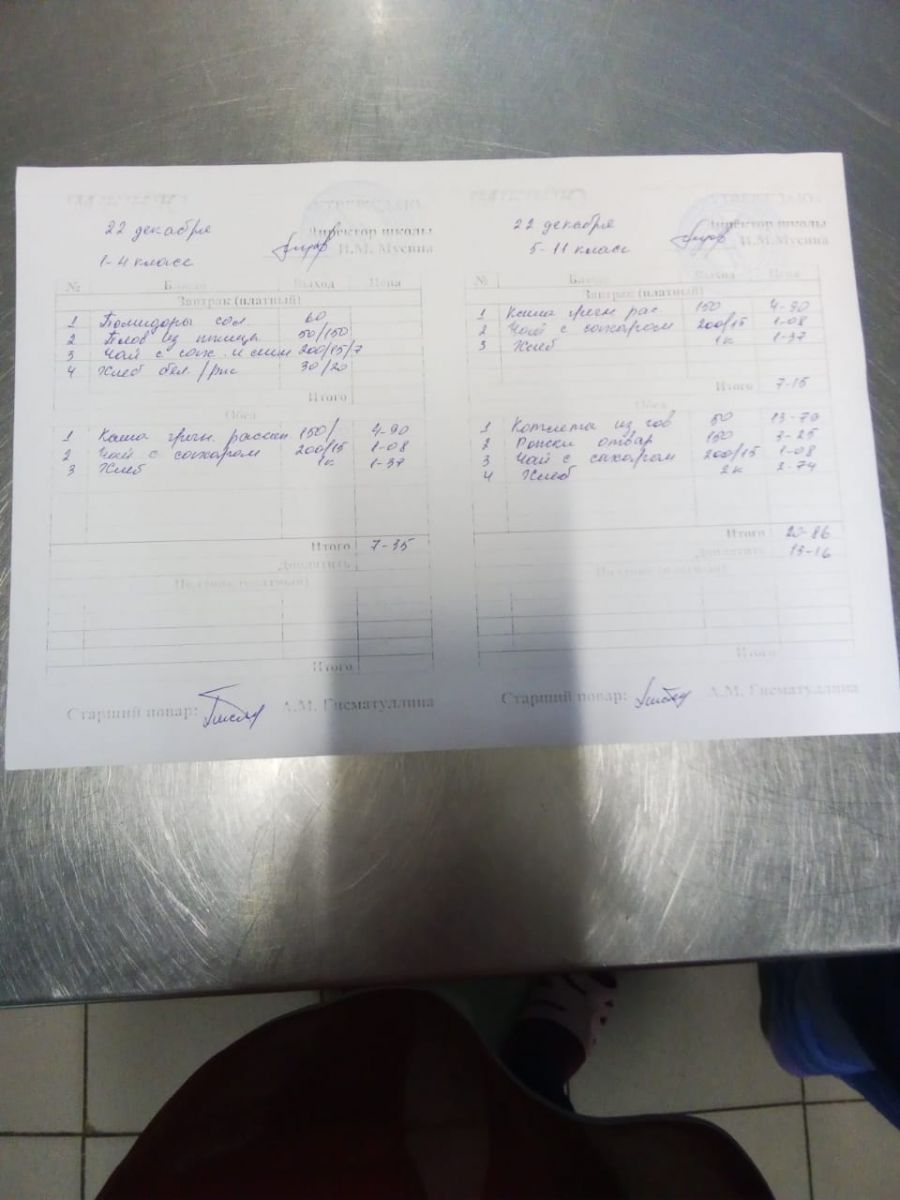 УТВЕРЖДАЮ
22 декабря Директор школы
И.М. Мусина
1-4 класс
№ Блюдо Выход Цена
Завтрак (платный)
1 Помидоры сол. 60
2 Плов из птицы 50/150
3 Чай с сах. и лим 200/15/7
4 Хлеб бел./рж 30/20
Итого
Обед
1 Каша гречн. рассып 150/ 4-90
2 Чай с сахаром 200/15 1-08
3 Хлеб 1к 1-37
Итого 7-35
Доплатить
Полдник (платный)
Итого
Старший повар: А.М. Гисматуллина
УТВЕРЖДАЮ
22 декабря Директор школы
И.М.Мусина
5-11 класс
№ Блюдо Выход Цена
Завтрак (платный)
1 Каша гречн рас 150 4-90
2 Чай с сахаром 200/15 1-08
3 Хлеб 1к 1-37
Итого 7-15
Обед
1 Котлета из гов 50 13-79
2 Рожки отвар 150 3-25
3 Чай с сахаром 200/15 1-08
4 Хлеб 2к 2-74
Итого 20-86
Доплатить 13-16
Полдник (платный)
Итого
Старший повар: А.М. Гисматуллина